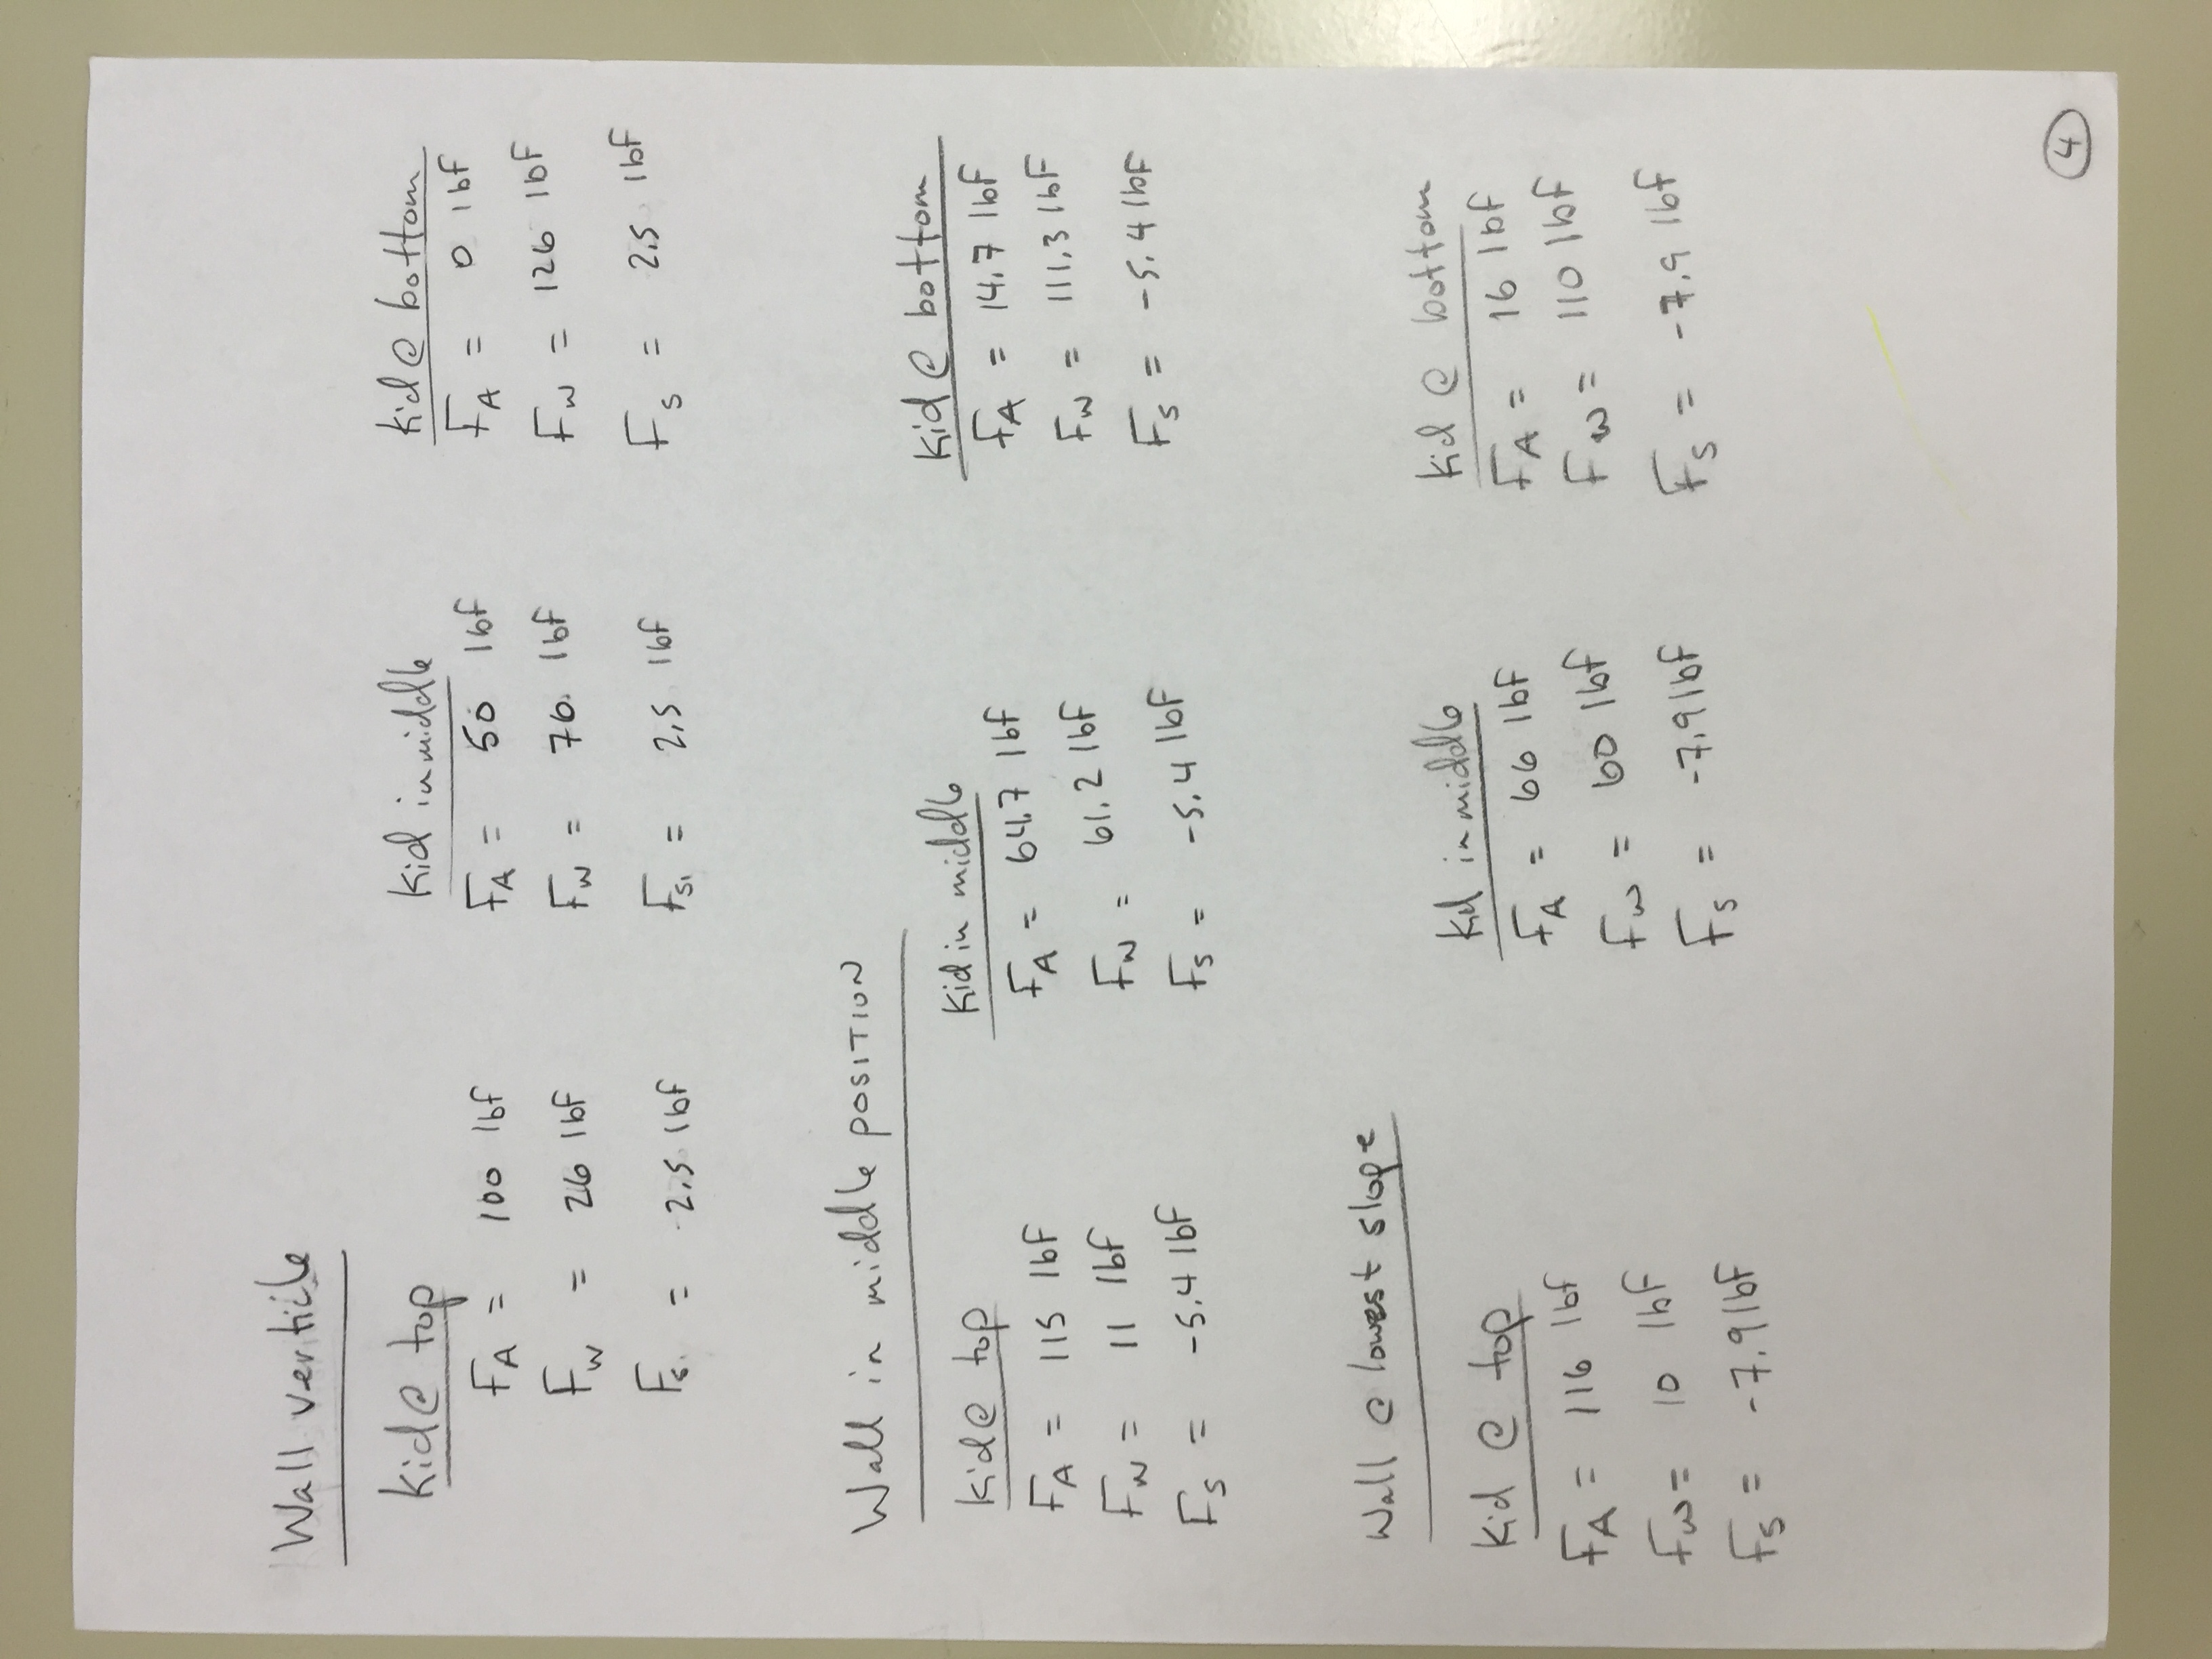 Wall verticle
Kid @ top
FA = 100 lbf
Fw = 26 lbf
Fs. = 2.5 lbf
Kid in middle
FA = 50 lbf
Fw = 76. lbf
Fs, = 2.5 lbf
Kid @ bottom
FA = 0 lbf
Fw = 126 lbf
Fs = 2.5 lbf
Wall in middle POSITION
Kid @ top
FA = 115 lbf
Fw = 11 lbf
Fs = -5.4 lbf
Kid in middle
FA = 64.7 lbf
Fw = 61.2 lbf
Fs = -5.4 lbf
Kid @ bottom
FA = 14.7 lbf
Fw = 111.3 lbf
Fs = -5.4 lbf
Wall @ lowest slope
Kid @ top
FA = 116 lbf
Fw = 10 lbf
Fs = -7.9 lbf
Kid in middle
FA = 66 lbf
Fw = 60 lbf
Fs = -7.9 lbf
Kid @ bottom
FA = 16 lbf
Fw = 110 lbf
Fs = -7.9 lbf
4